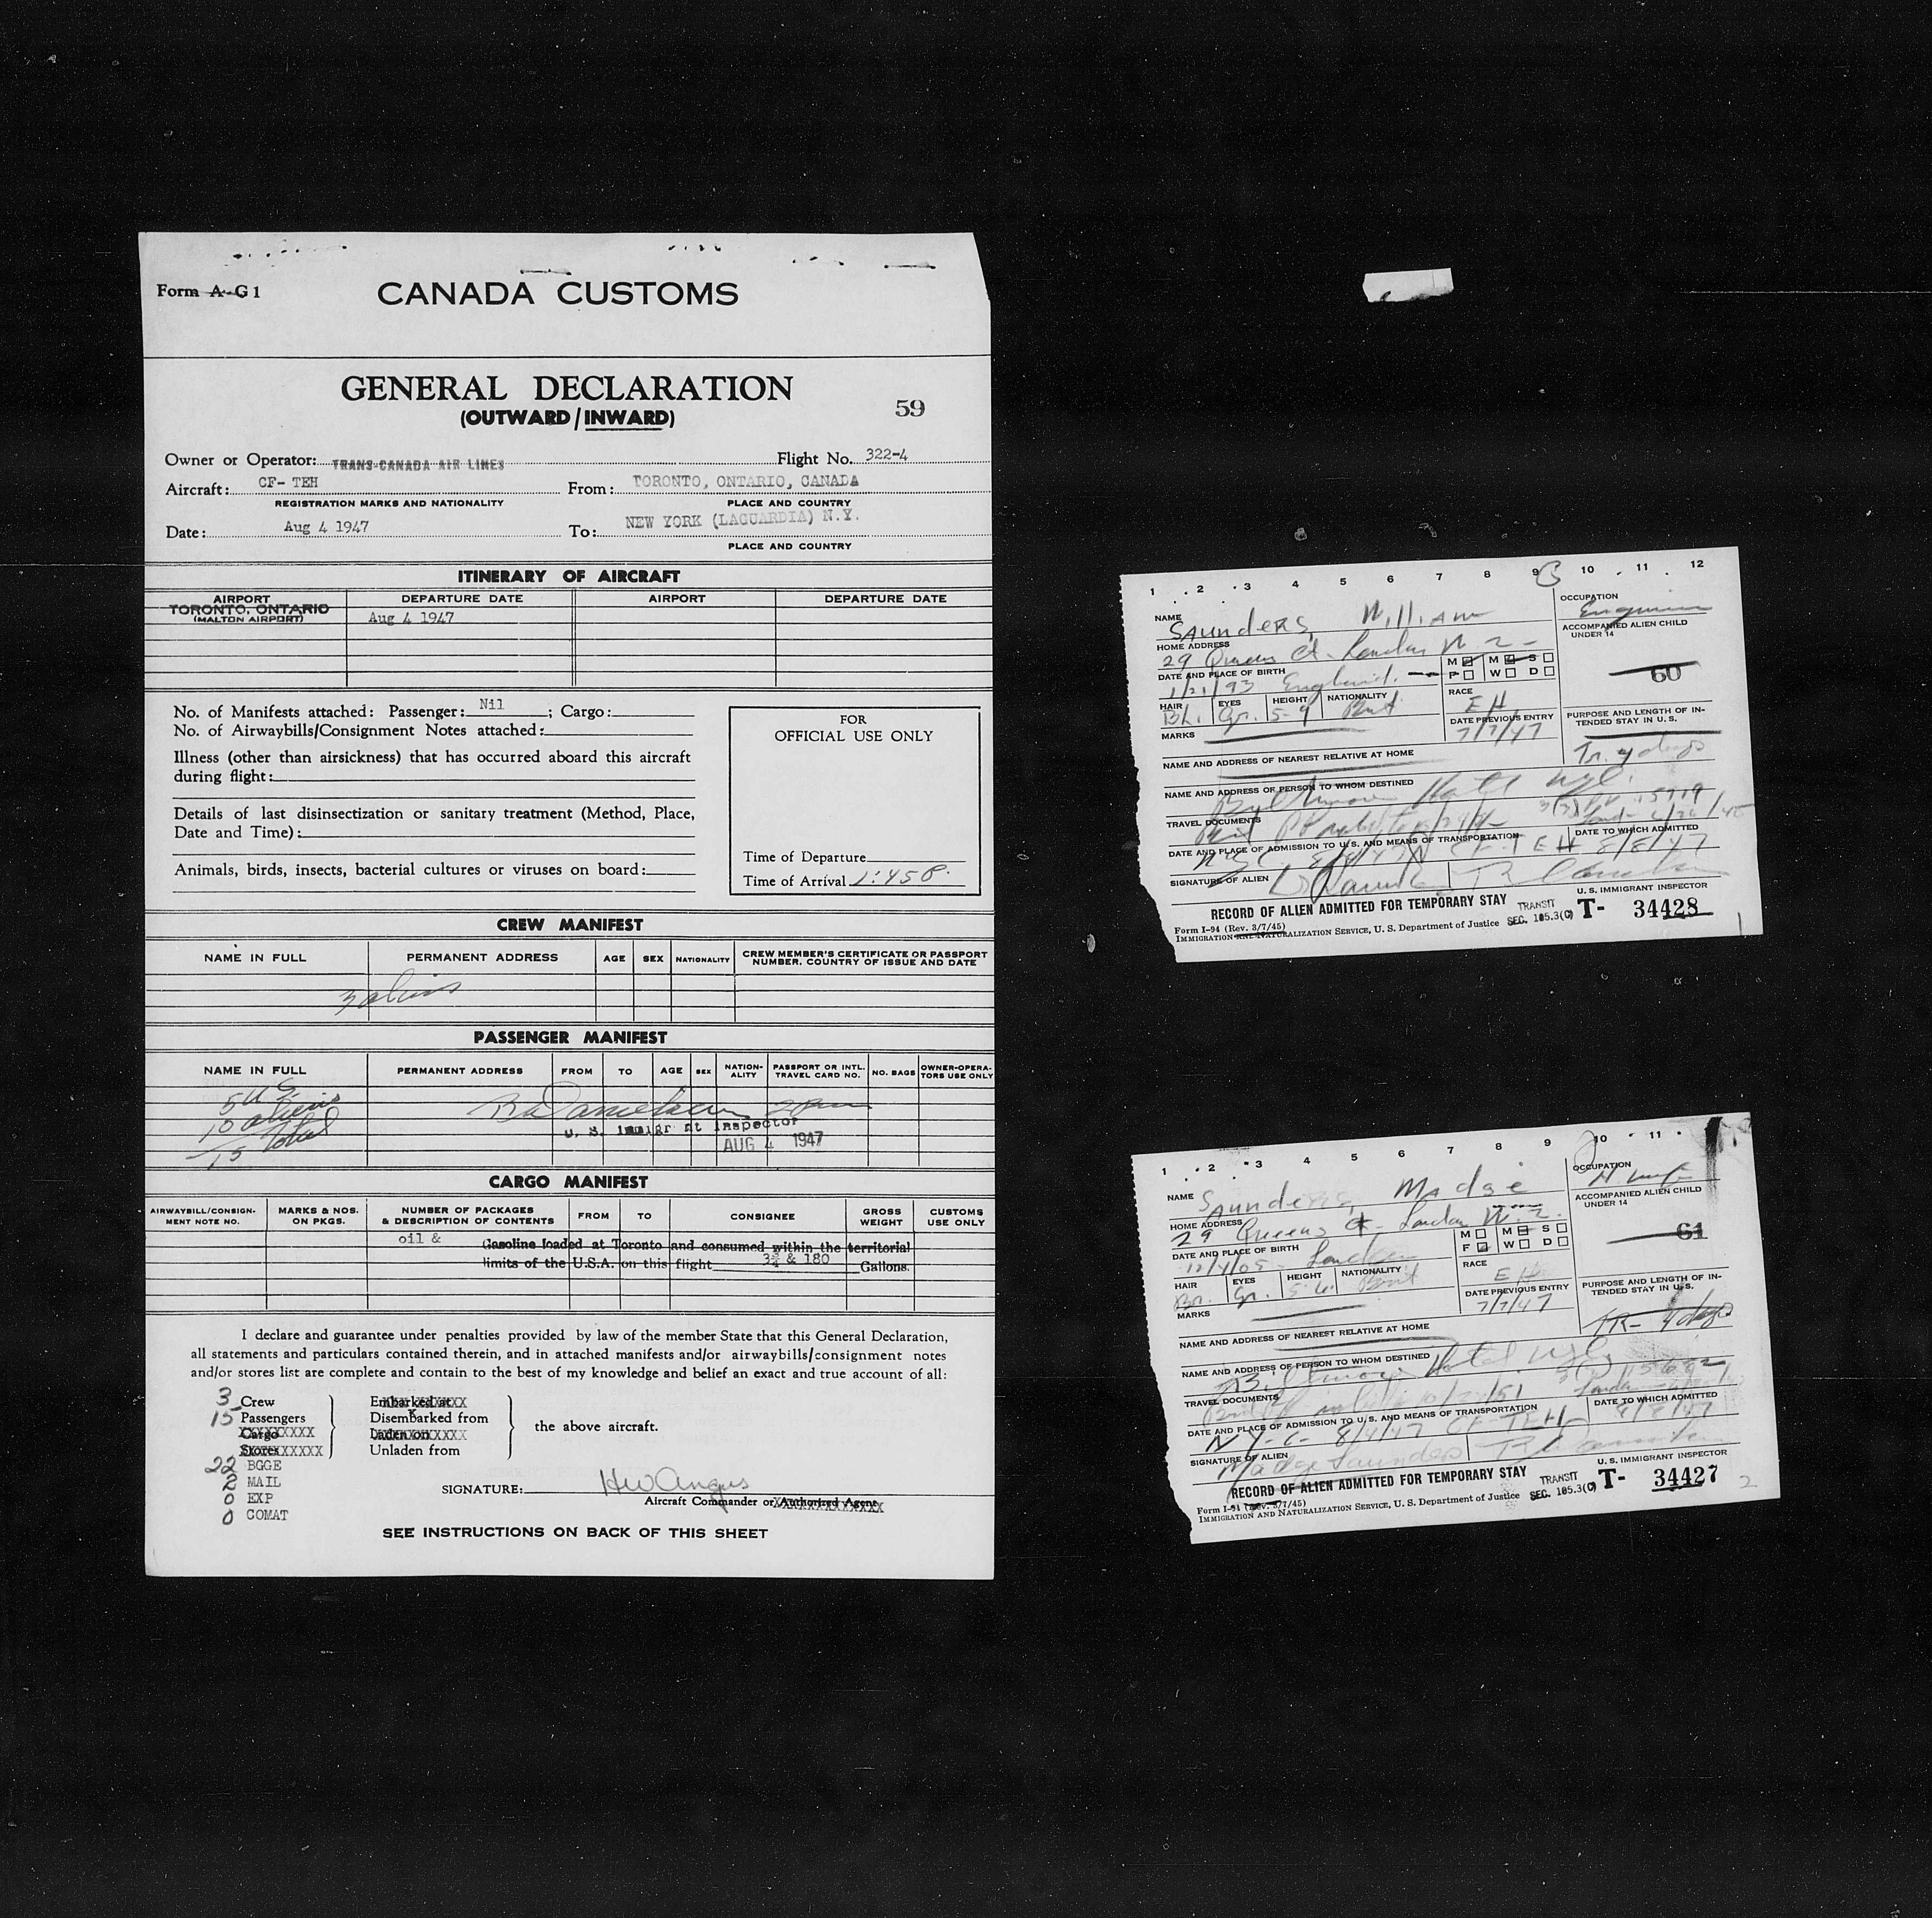 Form A-G 1
CANADA CUSTOMS
GENERAL DECLARATION
(OUTWARD/INWARD)
59
Owner or Operator: TRANS-CANADA AIR LINES Flight No. 322-4
Aircraft: CF- TEH From: TORONTO, ONTARIO, CANADA
REGISTRATION MARKS AND NATIONALITY PLACE AND COUNTRY
Date: Aug 4 1947 To: NEW YORK (LAGUARDIA) N.Y.
PLACE AND COUNTRY
ITINERARY OF AIRCRAFT
AIRPORT DEPARTURE DATE AIRPORT DEPARTURE DATE
TORONTO, ONTARIO
(MALTON AIRPORT) Aug 4 1947
No. of Manifests attached: Passenger: Nil ; Cargo:
No. of Airwaybills/Consignment Notes attached:
Illness (other than airsickness) that has occurred aboard this aircraft
during flight:
Details of last disinsectization or sanitary treatment (Method, Place,
Date and Time):
Animals, birds, insects, bacterial cultures or viruses on board:
FOR
OFFICIAL USE ONLY
Time of Departure
Time of Arrival 1:45 P.
CREW MANIFEST
NAME IN FULL PERMANENT ADDRESS AGE SEX NATIONALITY CREW MEMBER'S CERTIFICATE OR PASSPORT
NUMBER, COUNTRY OF ISSUE AND DATE
3 aliens
PASSENGER MANIFEST
NAME IN FULL PERMANENT ADDRESS FROM TO AGE SEX NATION-
ALITY PASSPORT OR INTL.
TRAVEL CARD NO. NO. BAGS OWNER-OPERA-
TORS USE ONLY
5 U.S.
10 aliens
15 total
U. S. Immigr nt Inspector
AUG 4 1947
CARGO MANIFEST
AIRWAYBILL/CONSIGN-
MENT NOTE NO. MARKS & NOS.
ON PKGS. NUMBER OF PACKAGES
& DESCRIPTION OF CONTENTS FROM TO CONSIGNEE GROSS
WEIGHT CUSTOMS
USE ONLY
oil & Gasoline loaded at Toronto and consumed within the territorial
limits of the U.S.A. on this flight 3¾ & 180 Gallons.
I declare and guarantee under penalties provided by law of the member State that this General Declaration,
all statements and particulars contained therein, and in attached manifests and/or airwaybills/consignment notes
and/or stores list are complete and contain to the best of my knowledge and belief an exact and true account of all:
3 Crew Embarked at
15 Passengers Disembarked from the above aircraft.
Cargo Laden on
Stores Unladen from
22 BGGE
2 MAIL
0 EXP
0 COMAT
SIGNATURE: HW Angus
Aircraft Commander or Authorized Agent
SEE INSTRUCTIONS ON BACK OF THIS SHEET
1 2 3 4 5 6 7 8 9 10 11 12
NAME Saunders, William
OCCUPATION
HOME ADDRESS
29 Queens Ct. London W 2
ACCOMPANIED ALIEN CHILD
UNDER 14
DATE AND PLACE OF BIRTH
1/21/93 England
M M S
F W D
60
HAIR EYES HEIGHT NATIONALITY RACE
Bl. Gr. 5-9 Brit E H
MARKS
DATE PREVIOUS ENTRY
7/7/47
PURPOSE AND LENGTH OF IN-
TENDED STAY IN U.S.
Tr. 4 days
NAME AND ADDRESS OF NEAREST RELATIVE AT HOME
NAME AND ADDRESS OF PERSON TO WHOM DESTINED
Hotel NYC
TRAVEL DOCUMENTS
DATE AND PLACE OF ADMISSION TO U.S. AND MEANS OF TRANSPORTATION
DATE TO WHICH ADMITTED
NYC 8/4/47 CF-TEH 8/8/47
SIGNATURE OF ALIEN
U. S. IMMIGRANT INSPECTOR
RECORD OF ALIEN ADMITTED FOR TEMPORARY STAY TRANSIT
SEC. 105.3(C) T- 34428
Form I-94 (Rev. 3/7/45)
IMMIGRATION AND NATURALIZATION SERVICE, U. S. Department of Justice
1 2 3 4 5 6 7 8 9 10 11
NAME Saunders, Madge
OCCUPATION
H. wife
HOME ADDRESS
29 Queens Ct- London W. 2.
ACCOMPANIED ALIEN CHILD
UNDER 14
DATE AND PLACE OF BIRTH
London
M M S
F W D
61
HAIR EYES HEIGHT NATIONALITY RACE
Br. Gr. Brit E H
MARKS
DATE PREVIOUS ENTRY
7/7/47
PURPOSE AND LENGTH OF IN-
TENDED STAY IN U.S.
TR- 4 days
NAME AND ADDRESS OF NEAREST RELATIVE AT HOME
NAME AND ADDRESS OF PERSON TO WHOM DESTINED
Hotel NYC
TRAVEL DOCUMENTS
DATE AND PLACE OF ADMISSION TO U.S. AND MEANS OF TRANSPORTATION
DATE TO WHICH ADMITTED
N.Y.C. 8/4/47 CF-TEH 8/8/47
SIGNATURE OF ALIEN
Madge Saunders
U. S. IMMIGRANT INSPECTOR
RECORD OF ALIEN ADMITTED FOR TEMPORARY STAY TRANSIT
SEC. 105.3(C) T- 34427 2
Form I-94 (Rev. 3/7/45)
IMMIGRATION AND NATURALIZATION SERVICE, U. S. Department of Justice